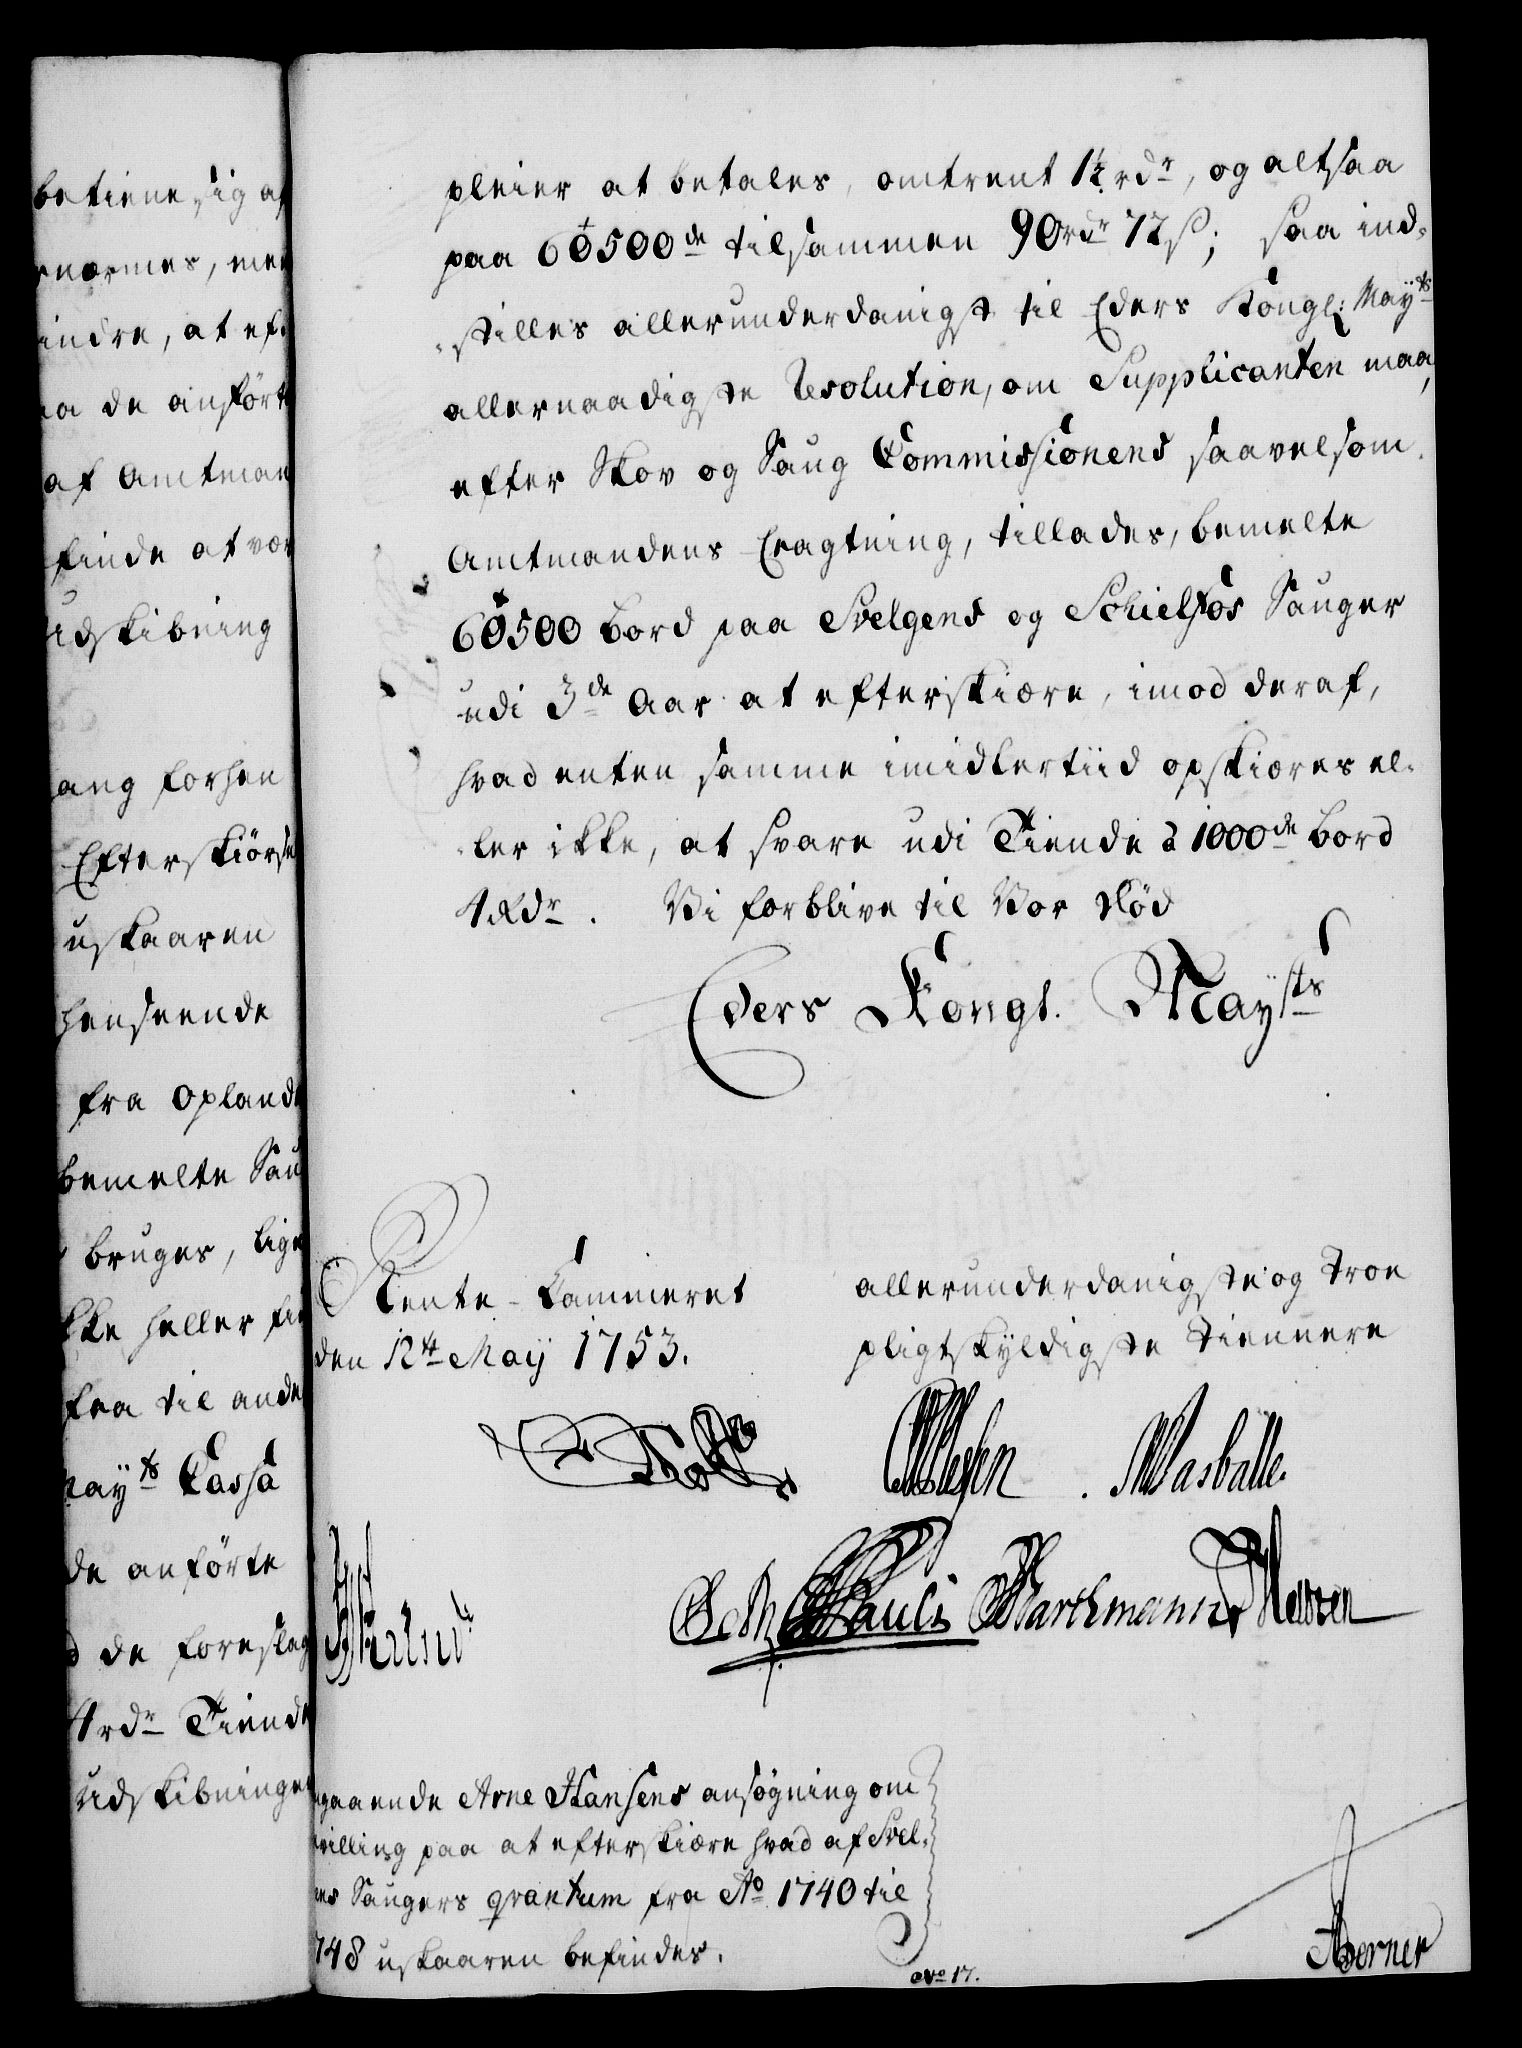 betiene sig af
nærmes, men
indre, at ef
de anførte
af Amtman
finde at vær
udskibning
ang forhen
Efterskiørse
uskaaren
henseende
fra Oplande
bemelte Sau
bruges, lige
ikke heller fin
fra til ande
Mayts Cassa
de anførte
de foreslag
4 rdr Tiende
Udskibningen
pleier at betales, omtrent 1½ rdr, og altsaa
paa 60500de tilsammen 90 rdr 72 ß; saa ind-
stilles allerunderdanigst til Eders Kongl: Mayts
allernaadigste Resolution, om Supplicanten maa,
efter Skov og Saug Commissionens saavelsom
Amtmandens Eragtning, tillades, bemelte
60500 Bord paa Svelgens og Schielfos Sauger
udi 3de Aar at efterskiære, imod deraf,
hvad enten samme imidlertiid opskiæres el-
ler ikke, at svare udi Tiende à 1000de Bord
4 Rdr. Vi forblive til Vor Død
Eders Kongl. Maysts
Rente-Cammeret
den 12te Maij 1753.
allerunderdanigste og troe
pligtskyldigste Tiennere
Pauli Barthmann
gaaende Arne Hansens ansøgning om
villing paa at efterskiære hvad af Svel-
ens Saugers qvantum fra Ao 1740 til
748 uskaaren befindes.
No 17.